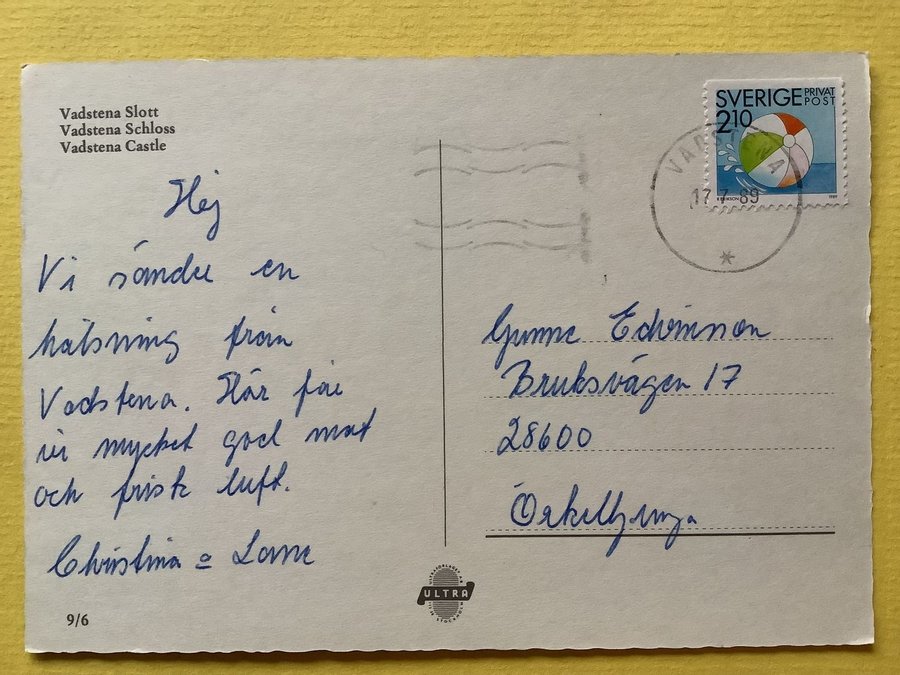 Vadstena Slott
Vadstena Schloss
Vadstena Castle
Hej
Vi sänder en
hälsning från
Vadstena. Här får
vi mycket god mat
och frisk luft.
Christina o
9/6
SVERIGE PRIVAT POST
2.10
1989
VADSTENA
17 7 89
Edvinsson
Bruksvägen 17
28600
Örkelljunga
ULTRA